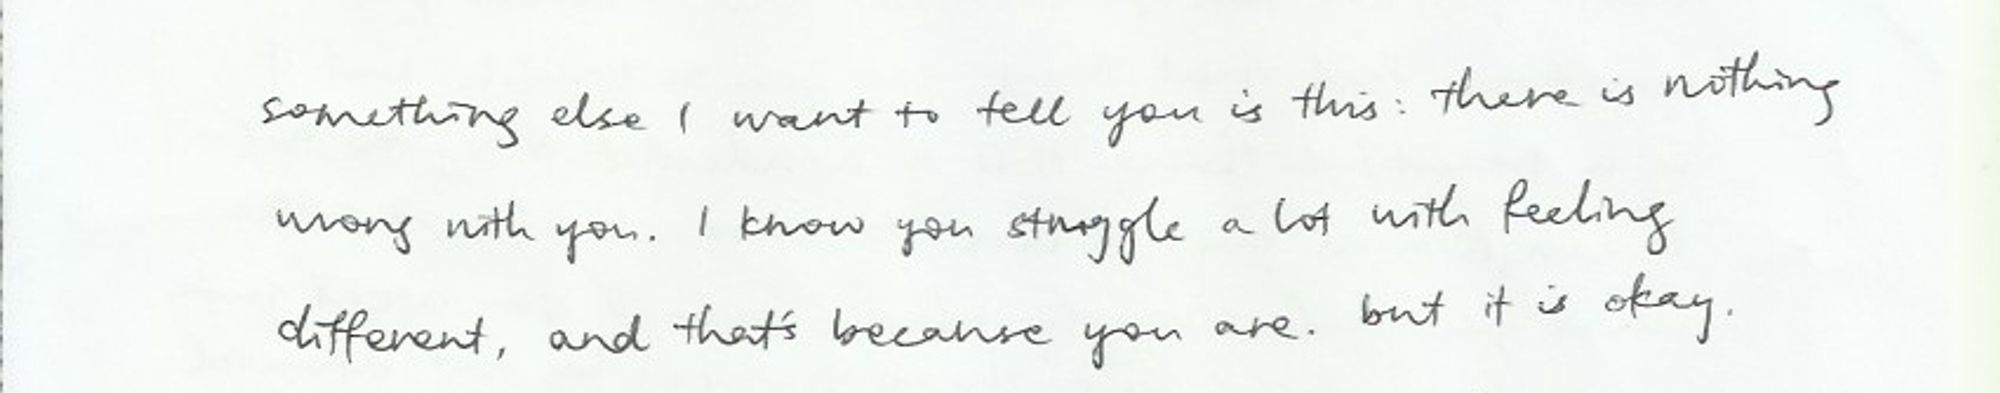 something else I want to tell you is this: there is nothing
wrong with you. I know you struggle a lot with feeling
different, and that's because you are. but it is okay.